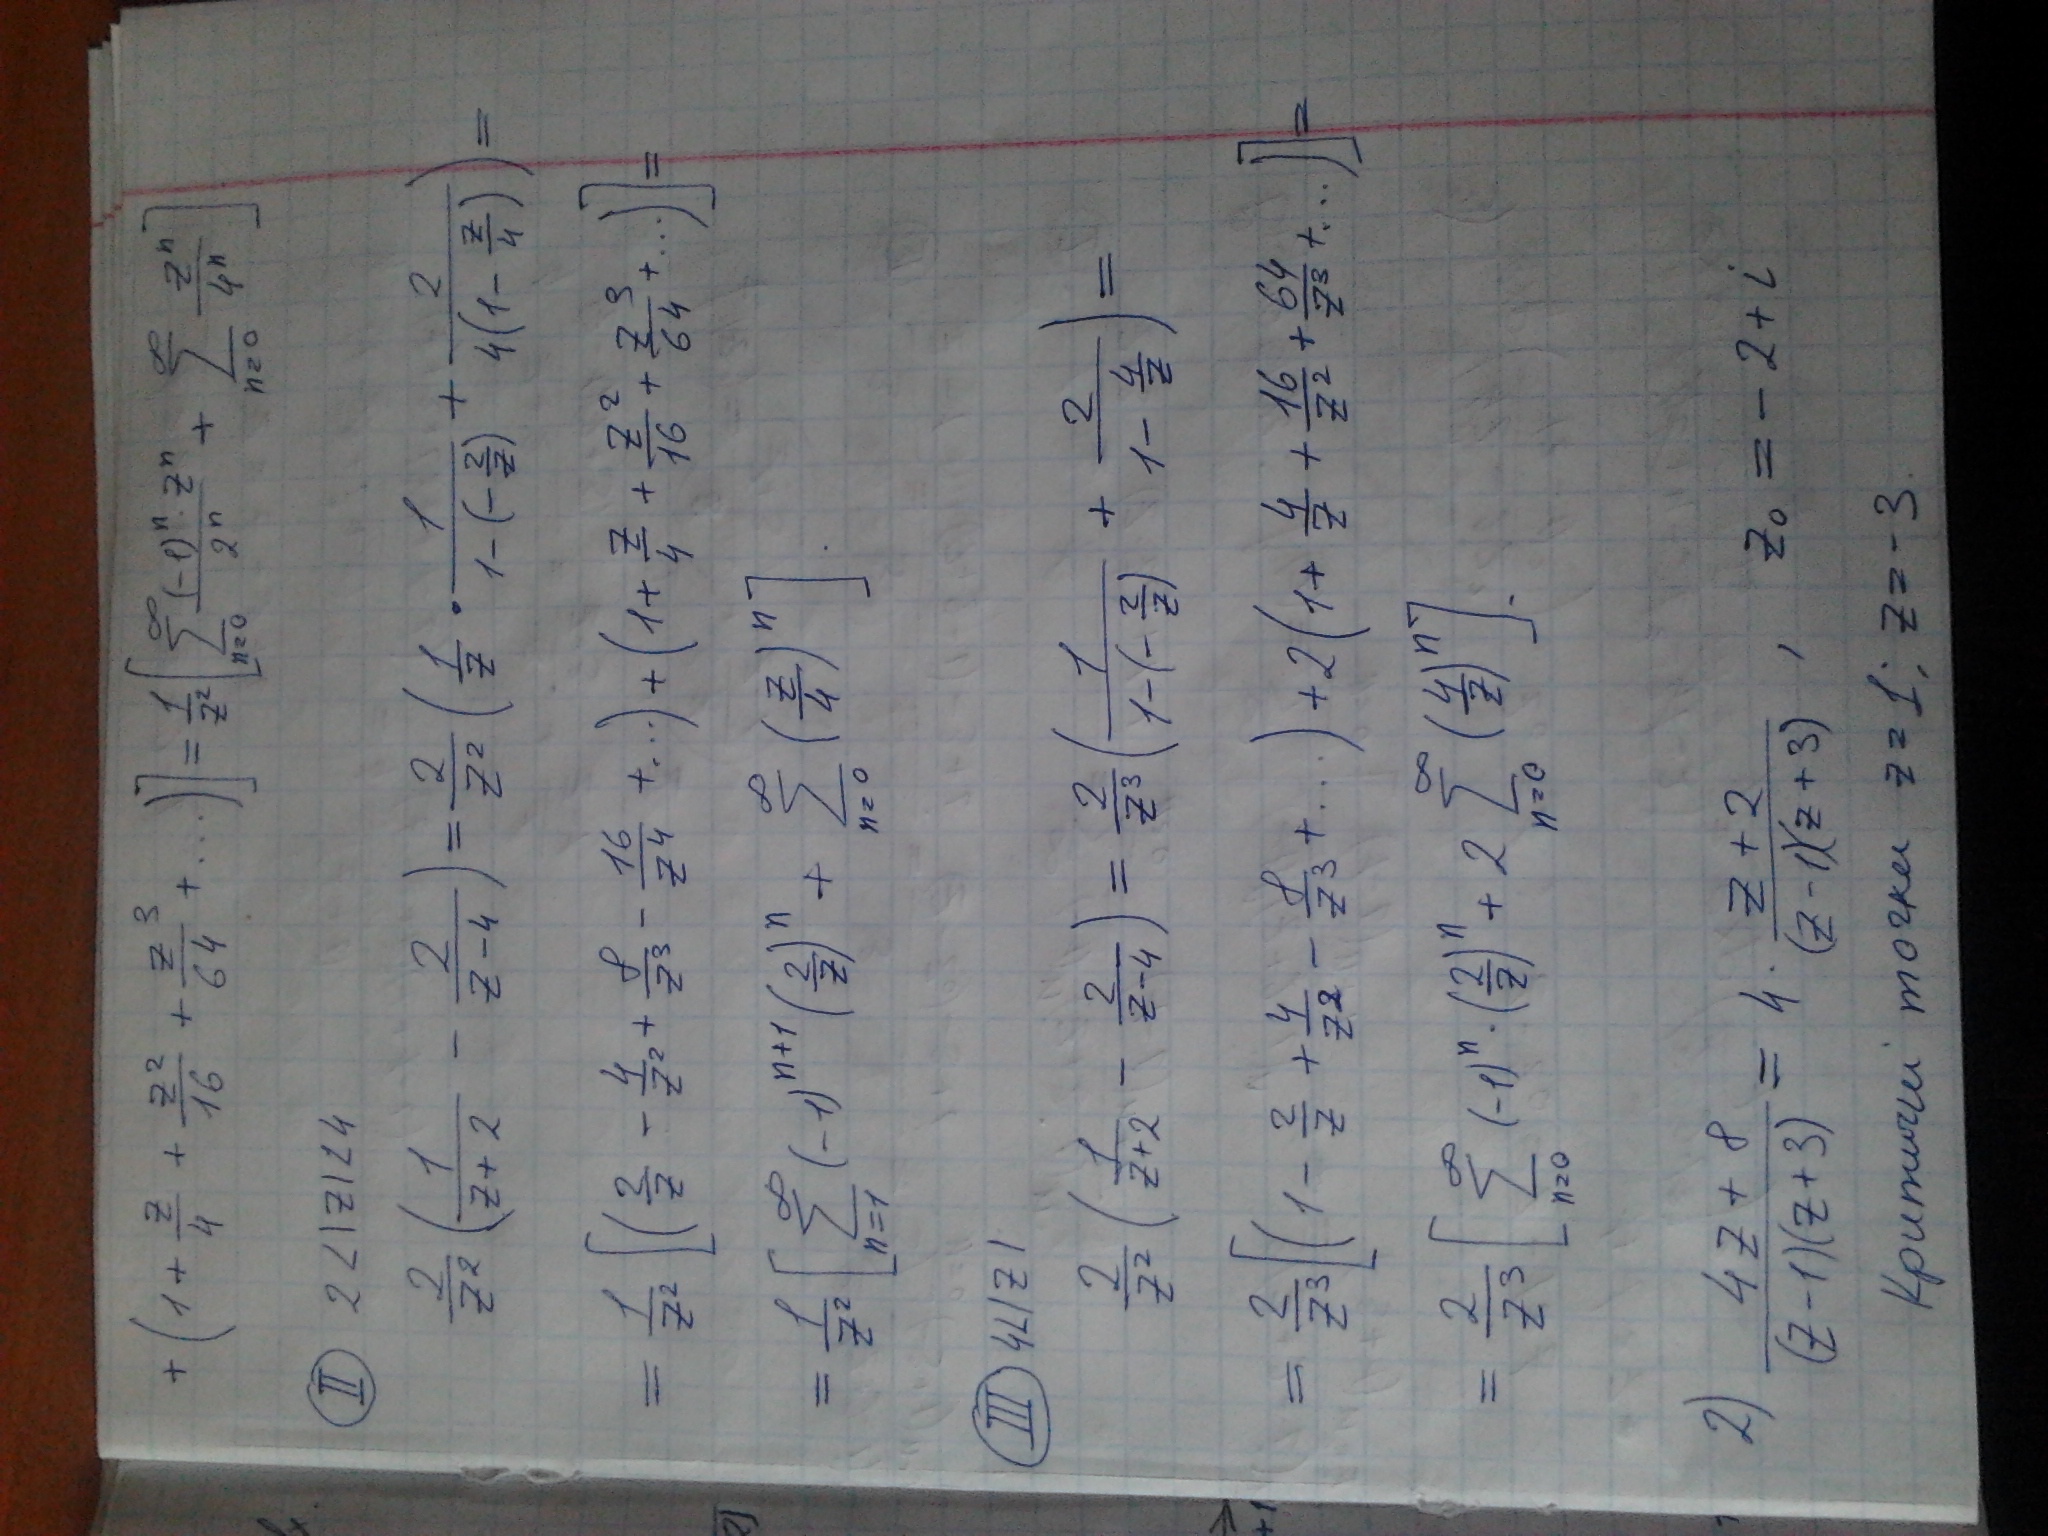 + (1 + z/4 + z²/16 + z³/64 + ...)] = 1/z² [∑_{n=0}^{∞} (-1)ⁿ · zⁿ / 2ⁿ + ∑_{n=0}^{∞} zⁿ/4ⁿ]
II 2 < |z| < 4
2/z² (1/(z+2) − 2/(z−4)) = 2/z² (1/z · 1/(1−(−2/z)) + 2/(4(1−z/4))) =
= 1/z² [(2/z − 4/z² + 8/z³ − 16/z⁴ + ...) + (1 + z/4 + z²/16 + z³/64 + ...)] =
= 1/z² [∑_{n=1}^{∞} (−1)^{n+1} (2/z)ⁿ + ∑_{n=0}^{∞} (z/4)ⁿ].
III 4 < |z|
2/z² (1/(z+2) − 2/(z−4)) = 2/z³ (1/(1−(−2/z)) + 2/(1−4/z)) =
= 2/z³ [(1 − 2/z + 4/z² − 8/z³ + ...) + 2(1 + 4/z + 16/z² + 64/z³ + ...)] =
= 2/z³ [∑_{n=0}^{∞} (−1)ⁿ · (2/z)ⁿ + 2 ∑_{n=0}^{∞} (4/z)ⁿ].
2) (4z+8)/((z−1)(z+3)) = 4 · (z+2)/((z−1)(z+3)), z₀ = −2+i
Критичні точки z=1; z=−3.